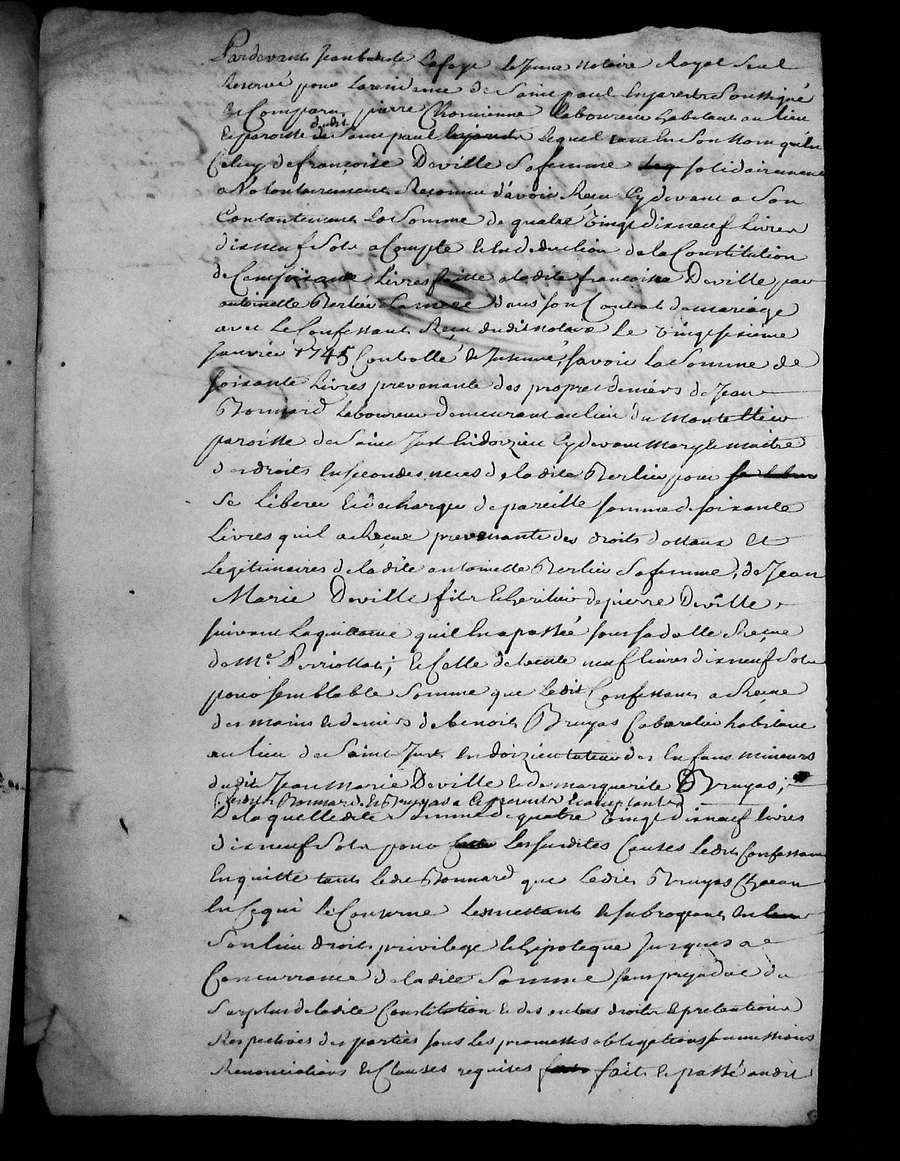 Pardevant Jean baptiste Lafage le Jeune notaire Royal Seul
Reservé pour la residence de Saint paul en jarest Soussigné
a Comparu pierre Chomienne laboureur habitant au lieu
et paroisse dudit Saint paul lequel tant en son nom qu'en
Celuy de françoise Deville Sa femme solidairement
a volontairement Reconnu d'avoir Receu Cy devant a Son
Contantement La Somme de quatre Vingt dixneuf Livres
dixneuf Sols a Compte et en deduction de la Constitution
de Livres faitte a ladite françoise Deville par
antoinette Berlier Sa mere dans son Contrat de mariage
avec Le Confessant Receu dudit notaire Le Vingt sixieme
Janvier 1745 Controllé et Insinué, scavoir La Somme de
soixante Livres prevenante des propres deniers de Jean
Bonnard Laboureur demeurant au lieu du
paroisse de Saint Just En doizieu Cy devant mary et maitre
des droits en secondes noces de ladite Berlier pour
se liberer et decharger de pareille somme de soixante
Livres quil a Receue prevenante des droits dottaux et
Legitimaires de ladite antoinette Berlier Sa femme, de Jean
Marie Deville fils et heritier de pierre Deville
suivant La quittance quil en a passée Receue
de Me ; et Celle de trente neuf livres dixneuf Sols
pour semblable Somme que ledit Confessant a Receue
des mains et deniers de benoit Bruyas Cabaretier habitant
au lieu de Saint Just en doizieu tuteur des Enfans mineurs
dudit Jean Marie Deville et de marguerite Bruyas;
lesdits Bonnard et Bruyas a Ce presents et acceptants
De laquelle dite Somme de quatre Vingt dixneuf livres
dixneuf Sols pour les susdites Causes ledit Confessant
En quitte tant ledit Bonnard que ledit Bruyas Chacun
En Ce qui le Concerne les mettant et subrogeant en
Son lieu droit privilege et hipoteque Jusques a
Concurrance de ladite Somme sans prejudice du
Surplus de ladite Constitution et des autres droits et pretentions
Respectives des parties sous les promesses obligations soumissions
Renonciations et Clauses requises fait et passé audit